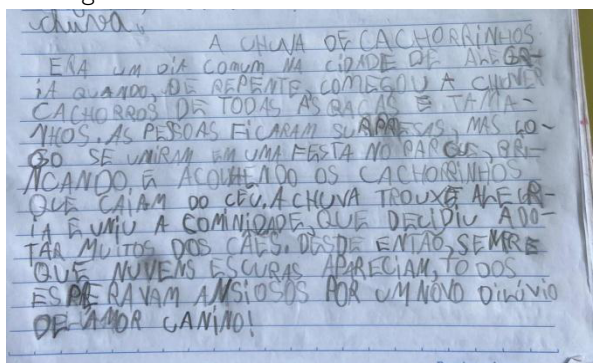 chuva.
A CHUVA DE CACHORRINHOS
ERA UM DIA COMUM NA CIDADE DE ALEGR-
IA QUANDO, DE REPENTE, COMEGOU A CHUVER
CACHORROS DE TODAS AS RAÇAS E TAMA-
NHOS. AS PESOAS FICARAM SURPRESAS, MAS LO-
GO SE UNIRAM EM UMA FESTA NO PARQUE, BRI-
NCANDO, E ACOLHENDO OS CACHORRINHOS
QUE CAIAM DO CÉU, A CHUVA TROUXE ALEGR-
IA E UNIU A COMINIDADE, QUE DECIDIU ADO-
TAR MUITOS DOS CÃES. DESDE ENTÃO, SEMPRE
QUE NUVENS ESCURAS APARECIAM, TODOS
ESPERAVAM ANSIOSOS POR UM NOVO DILÚVIO
DE AMOR CANINO!